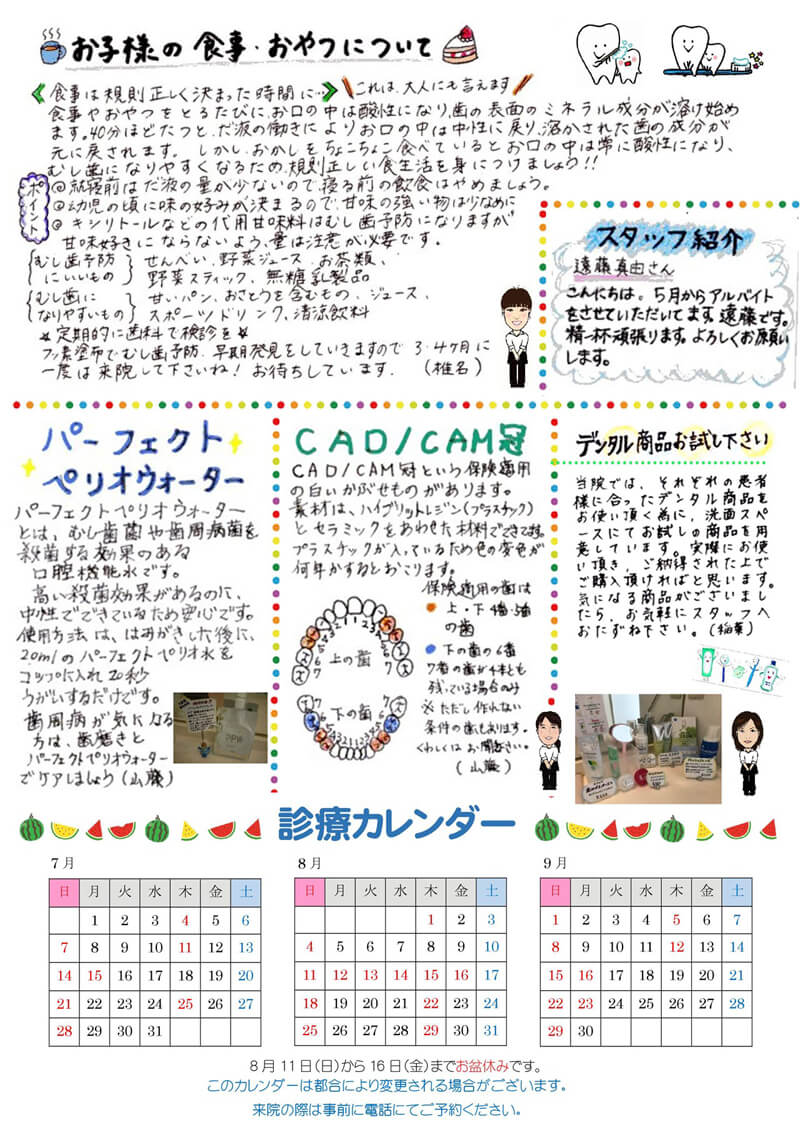 お子様の食事・おやつについて
《食事は規則正しく決まった時間に…》 \これは、大人にも言えます/
食事やおやつをとるたびに、お口の中は酸性になり、歯の表面のミネラル成分が溶け始め
ます。40分ほどたつと、だ液の働きによりお口の中は中性に戻り、溶かされた歯の成分が
元に戻されます。しかし、おかしをちょこちょこ食べているとお口の中は常に酸性になり、
むし歯になりやすくなるため、規則正しい食生活を身につけましょう!!
ポイント
◎就寝前はだ液の量が少ないので、寝る前の飲食はやめましょう。
◎幼児の頃に味の好みが決まるので、甘味の強い物は少なめに
◎キシリトールなどの代用甘味料はむし歯予防になりますが
甘味好きにならないよう、量は注意が必要です。
むし歯予防にいいもの
せんべい、野菜ジュース、お茶類、
野菜スティック、無糖乳製品
むし歯になりやすいもの
甘いパン、おさとうを含むもの、ジュース、
スポーツドリンク、清涼飲料
★定期的に歯科で検診を★
フッ素塗布でむし歯予防、早期発見をしていきますので 3・4ヶ月に
一度は来院して下さいね! お待ちしています. (椎名)
スタッフ紹介
遠藤真由さん
こんにちは。5月からアルバイト
をさせていただいてます、遠藤です。
精一杯頑張ります。よろしくお願い
します。
パーフェクト
ペリオウォーター
パーフェクトペリオウォーター
とは、むし歯菌や歯周病菌を
殺菌する効果のある
口腔機能水です。
高い殺菌効果があるのに、
中性でできているため安心です。
使用方法は、はみがきした後に、
20mlのパーフェクトペリオ水を
コップに入れ20秒
うがいするだけです。
歯周病が気になる
方は、歯磨きと
パーフェクトペリオウォーター
でケアしましょう
CAD/CAM冠
CAD/CAM冠という保険適用
の白いかぶせものがあります。
素材は、ハイブリットレジン(プラスチック)
とセラミックをあわせた材料でできてます。
プラスチックが入っているため色の変色が
何年かするとおこります。
保険適用の歯は
● 上・下4番・5番
の歯
● 下の歯の6番
7番の歯が4本とも
残っている場合のみ
※ただし作れない
条件の歯もあります。
くわしくはお聞き下さい。
上の歯
下の歯
デンタル商品お試し下さい
当院では、それぞれの患者
様に合ったデンタル商品を
お使い頂く為に、洗面スペ
ースにてお試しの商品を用
意しています。実際にお使
い頂き、ご納得された上で
ご購入頂ければと思います。
気になる商品がございまし
たら、お気軽にスタッフへ
おたずね下さい。(稲葉)
診療カレンダー
7月
日 月 火 水 木 金 土
1 2 3 4 5 6
7 8 9 10 11 12 13
14 15 16 17 18 19 20
21 22 23 24 25 26 27
28 29 30 31
8月
日 月 火 水 木 金 土
1 2 3
4 5 6 7 8 9 10
11 12 13 14 15 16 17
18 19 20 21 22 23 24
25 26 27 28 29 30 31
9月
日 月 火 水 木 金 土
1 2 3 4 5 6 7
8 9 10 11 12 13 14
15 16 17 18 19 20 21
22 23 24 25 26 27 28
29 30
8月11日(日)から16日(金)までお盆休みです。
このカレンダーは都合により変更される場合がございます。
来院の際は事前に電話にてご予約ください。